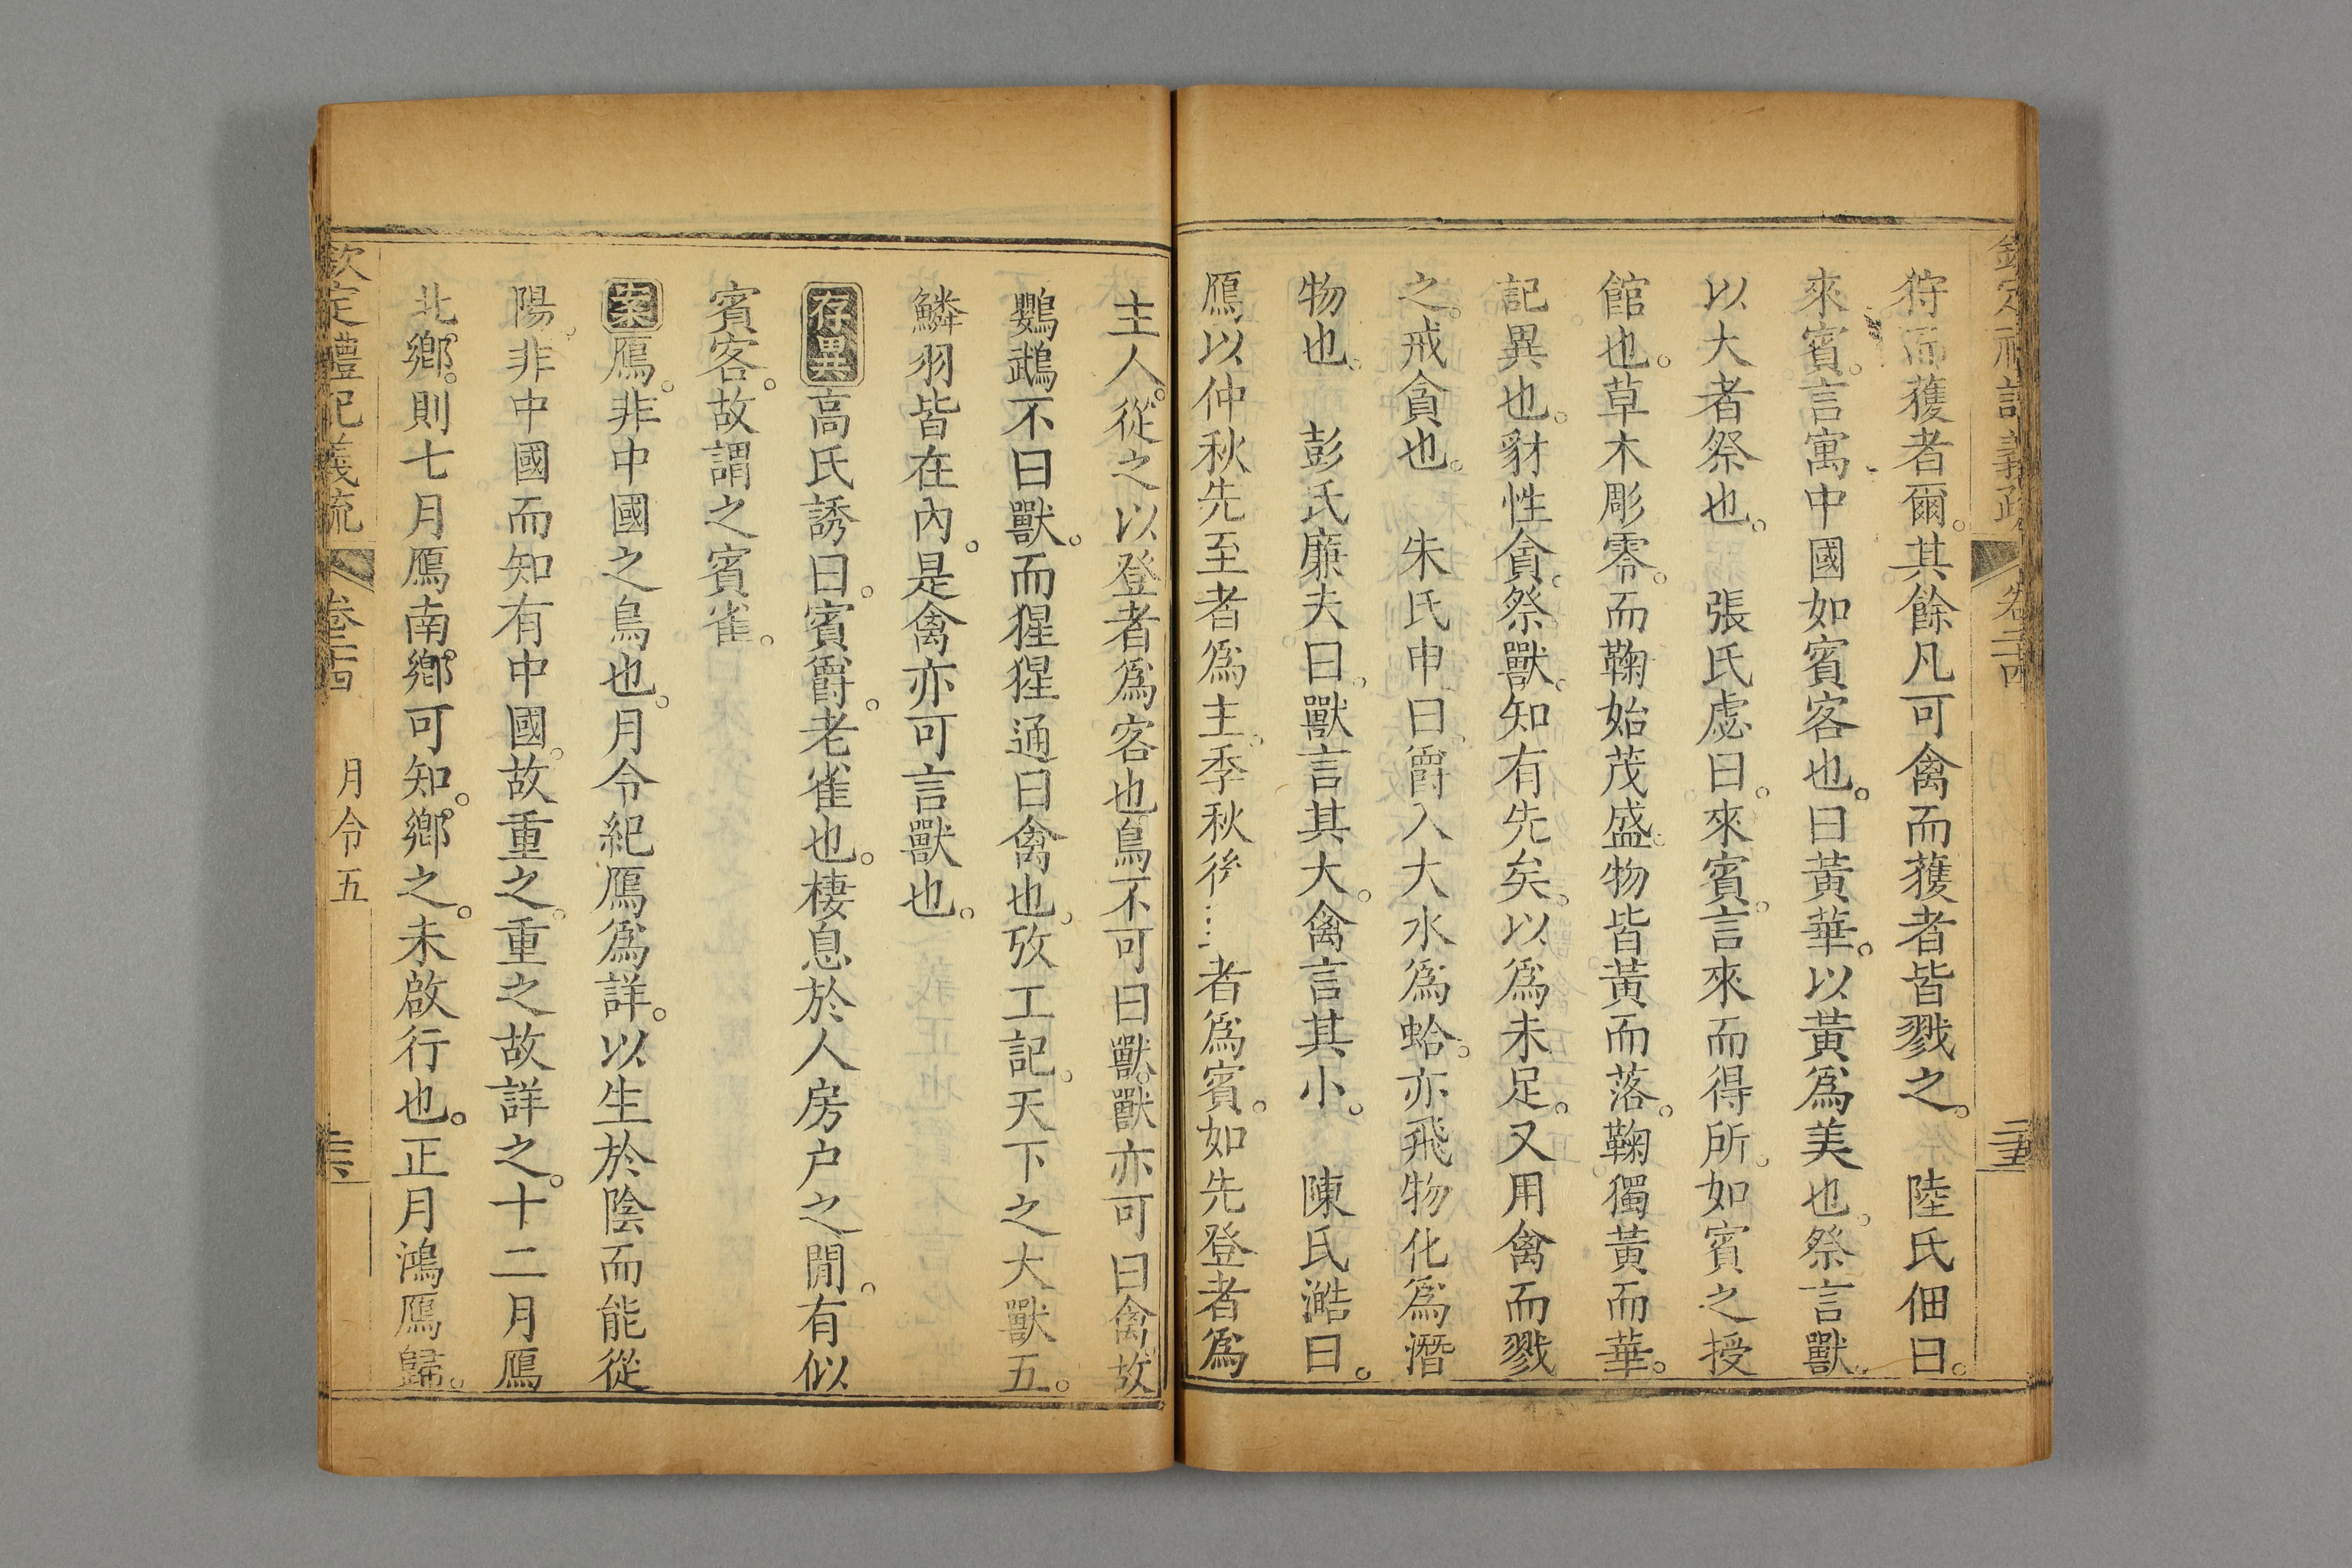 狩而獲者爾。其餘凡可禽而獲者皆戮之。　陸氏佃曰。
來賓。言寓中國如賓客也。曰黃華。以黃爲美也。祭言獸。
以大者祭也。　張氏虙曰。來賓。言來而得所。如賓之授
館也。草木彫零。而鞠始茂盛。物皆黃而落。鞠獨黃而華。
記異也。豺性貪。祭獸。知有先矣。以爲未足。又用禽而戮
之。戒貪也。　朱氏申曰。爵入大水爲蛤。亦飛物化爲潛
物也。　彭氏廉夫曰。獸言其大。禽言其小。　陳氏澔曰。
鴈以仲秋先至者爲主。季秋後者爲賓。如先登者爲
主人。從之以登者爲客也鳥不可曰獸。獸亦可曰禽。故
鸚鵡不曰獸。而猩猩通曰禽也。攷工記。天下之大獸五。
鱗羽皆在內。是禽亦可言獸也。
存異高氏誘曰。賓爵。老雀也。棲息於人房户之閒。有似
賓客。故謂之賓雀。
案鴈。非中國之鳥也。月令紀鴈爲詳。以生於陰而能從
陽。非中國而知有中國。故重之。重之故詳之。十二月鴈
北鄉。則七月鴈南鄉可知。鄉之。未啟行也。正月鴻鴈歸。
欽定禮記義疏
卷二十四
月令五